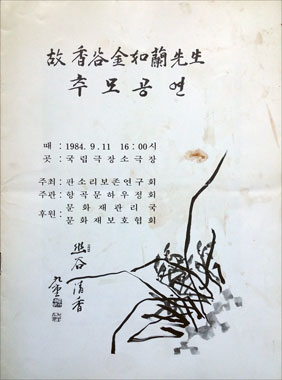 故香谷金如蘭先生
추모공연
때 : 1984. 9. 11 16 : 00시
곳 : 국립극장소극장
주최 : 판소리보존연구회
주관 : 향곡문하우정회
후원 : 문화재관리국
문화재보호협회
幽谷
清香